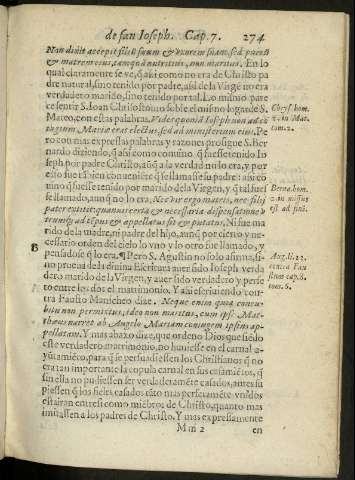 de san Ioseph. Cap. 7. 274
Non dixit accepit filiū suum & uxorem suam, sed puerū
& matrem eius, tamquā nutritius, non maritus. En lo
qual claramente se ve, q̃ asi como no era de Christo pa
dre natural, sino tenido por padre, asi de la Virgē no era
verdadero marido, sino tenido por tal. Lo mismo pare
ce sentir S. Ioan Chrisostomo sobre el mismo lugar de S.
Mateo, con estas palabras. Vider quomodo Ioseph non ad cō
iugium Mariæ eras electus, sed ad ministerium eius. Pe
ro con mas expressas palabras y razones prosigue S. Ber
nardo diziendo, q̃ asi como conuino q̃ fuesse tenido Io
seph por padre de Christo, aūq̃ a la verdad no lo era, y por
esto fue tābien conueniēte q̃ se llamasse su padre: asi cō
uino q̃ fuesse tenido por marido de la Virgen, y q̃ tal fuesse
se llamado, aunq̃ no lo era. Nec vir ergo matris, nec filij
pater extitit: quamuis certa & necessaria dispensatione v
trumq; ad tēpus & appellatus sit & putatus. Ni fue ma
rido de la madre, ni padre del hijo, aunq̃ por cierto y ne
cessario orden del cielo lo vno y lo otro fue llamado, y
B pensadose q̃ lo era. ¶ Pero S. Agustin no solo afirma, si
no prueua de la diuina Escritura auer sido Ioseph verda
dero marido de la Virgen, y auer sido verdadero y perfe
to entre los dos el matrimonio. Y asi escriuiendo con-
tra Fausto Manicheo dize. Neque enim quia concu-
bitu non permixtus, ideo non maritus, cum ipse Mat-
thæus narret ab Angelo Mariam coniugem ipsius ap-
pellatam. Y mas abaxo dize, que ordeno Dios que siēdo
este verdadero matrimonio, no huuiesse en el carnal a-
yūtamiēto, para q̃ se persuadiessen los Christianos q̃ no
era tan importante la copula carnal en sus casamiētos, q̃
sin ella no pudiessen ser verdaderamēte casados, antes su
piessen q̃ los fieles casados tāto mas perfetamēte vnidos
estarian entre si como miēbros de Christo, quanto mas
imitassen a los padres de Christo. Y mas expressamente
Mm 2 en
Chrys. hom.
4. in Mat.
tom. 2.
Berna. hom.
2. in missus
est ad fine.
Aug. li. 23.
contra Fau
stum cap. 8.
tom. 6.